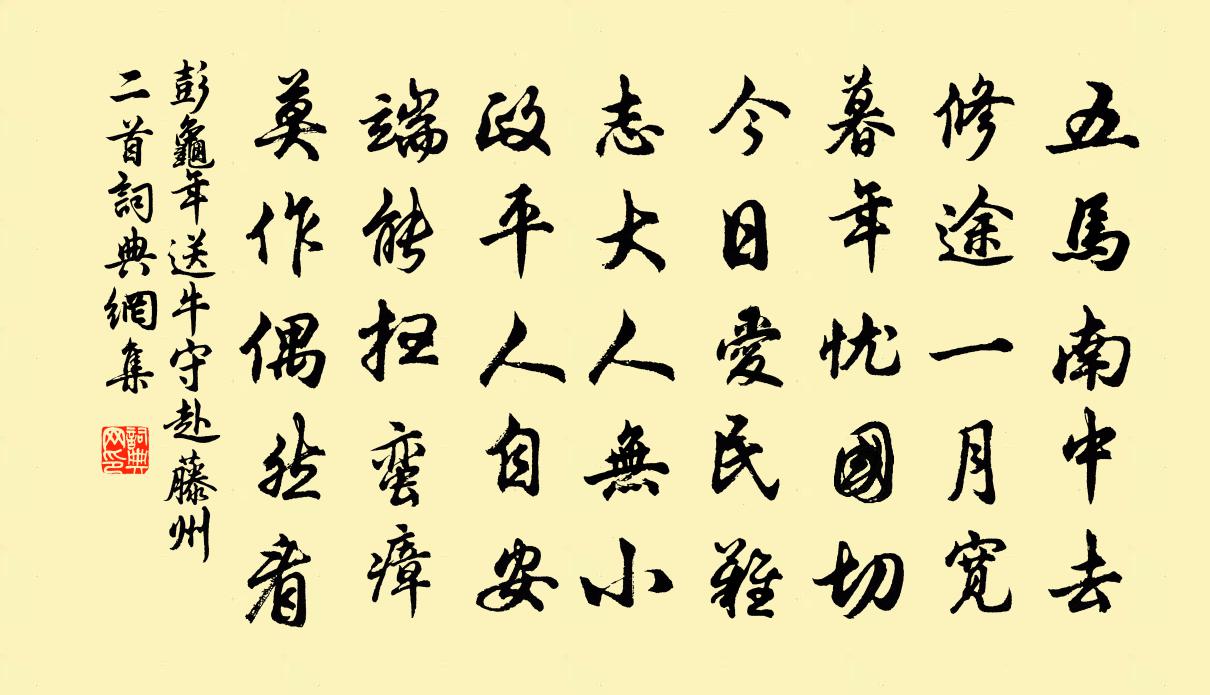 五馬南中去
修途一月寬
暮年忧國切
今日愛民難
志大人無小
政平人自安
端能扭蛮瘴
莫作偶然看
彭龜年送牛守赴藤州
二首詞典網集
詞典网印